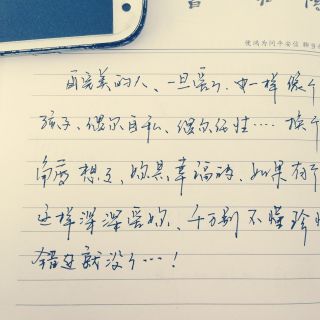 鸿为问平安信
再完美的人、一旦爱了、也一样像个
孩子、偶尔自私、偶尔任性…. 换个
角度想之、你是幸福的、如果有个
这样深深爱你、千万别不懂珍
错过就没了…!